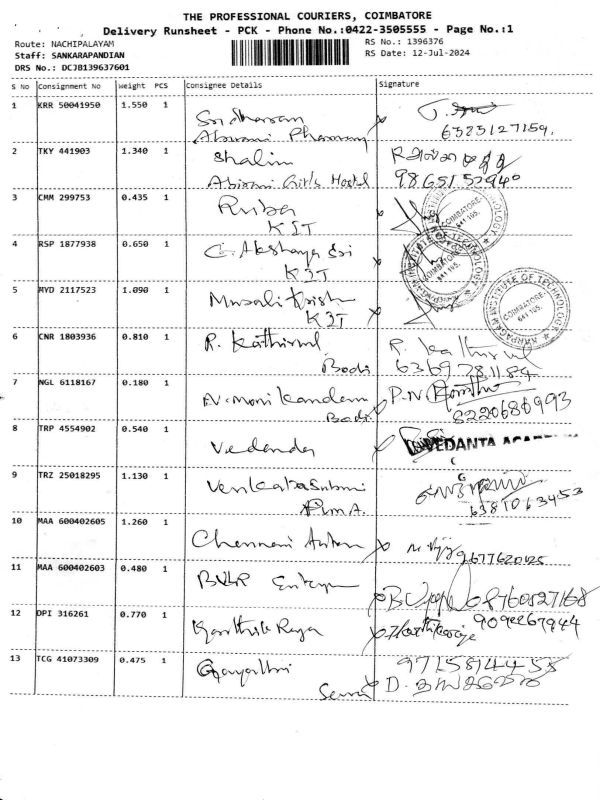 THE PROFESSIONAL COURIERS, COIMBATORE
Delivery Runsheet - PCK - Phone No.:0422-3505555 - Page No.:1
Route: NACHIPALAYAM
RS No.: 1396376
Staff: SANKARAPANDIAN
RS Date: 12-Jul-2024
DRS No.: DCJB139637601
S No Consignment No Weight PCS Consignee Details Signature
1 KRR 50041950 1.550 1
Abirami Pharmacy 6323127159.
2 TKY 441903 1.340 1 Shalini
Abirami Girls Hostel 9865152940
3 CMM 299753 0.435 1 Ruba
KIT
4 RSP 1877938 0.650 1 G. Akshaya Sri
KIT
5 MYD 2117523 1.090 1 Murali Krish
KIT
KARPAGAM INSTITUTE OF TECHNOLOGY
COIMBATORE-
641 105.
6 CNR 1803936 0.810 1 R. Kathirvel R. Kathirvel
Bodi 6369781184
7 NGL 6118167 0.180 1 N. Manikandan P.N
Bodi 8220686993
8 TRP 4554902 0.540 1 Vedanda VEDANTA
9 TRZ 25018295 1.130 1 Venkatasubmi
6381063453
10 MAA 600402605 1.260 1 Chennai 9677620125
11 MAA 600402603 0.480 1 BVLR 8760827168
12 DPI 316261 0.770 1 Karthik Raja 9092267944
13 TCG 41073309 0.475 1 Gayathri 9715814455
D.